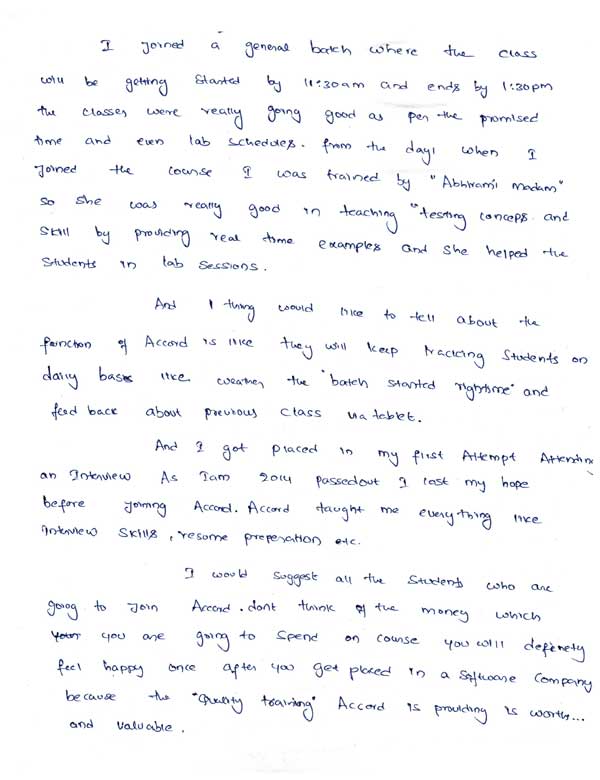 I joined a general batch where the class
will be getting started by 11:30am and ends by 1:30pm
the classes were really going good as per the promised
time and even lab schedules. from the day1 when I
joined the course I was trained by "Abhirami Madam"
so she was really good in teaching "testing conceps and
skill by providing real time examples and she helped the
students in lab sessions.
And 1 thing would like to tell about the
function of Accord is like they will keep tracking students on
daily basis like weather the "batch started rightime" and
feed back about previous class via tablet.
And I got placed in my first Attempt Attending
an Interview As Iam 2014 passedout I lost my hope
before joining Accord. Accord taught me everything like
Interview skills, resume preperation etc.
I would suggest all the students who are
going to join Accord. dont think of the money which
you are going to spend on course you will definety
feel happy once after you get placed in a software company
because the "Quality training" Accord is providing is worth...
and valuable.